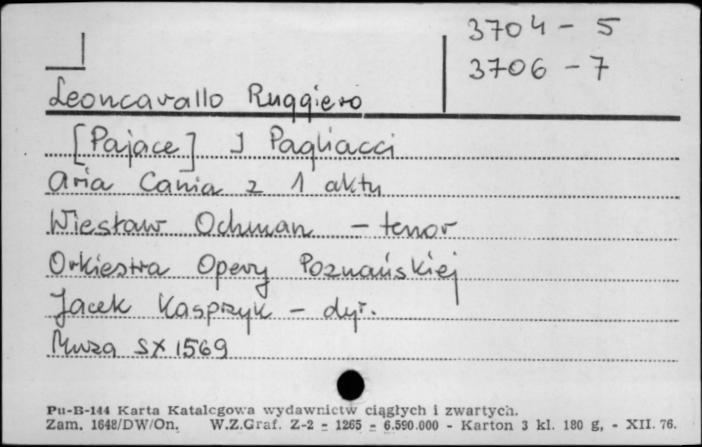 3704 - 5
3706 - 7
Leoncavallo Ruggiero
[Pajace] I Pagliacci
Aria Cania z 1 aktu
Wiesław Ochman - tenor
Orkiestra Opery Poznańskiej
Jacek Kasprzyk - dyr.
Muza SX 1569
Pu-B-144 Karta Katalogowa wydawnictw ciągłych i zwartych.
Zam. 1648/DW/On. W.Z.Graf. Z-2 = 1265 = 6.590.000 - Karton 3 kl. 180 g, - XII. 76.